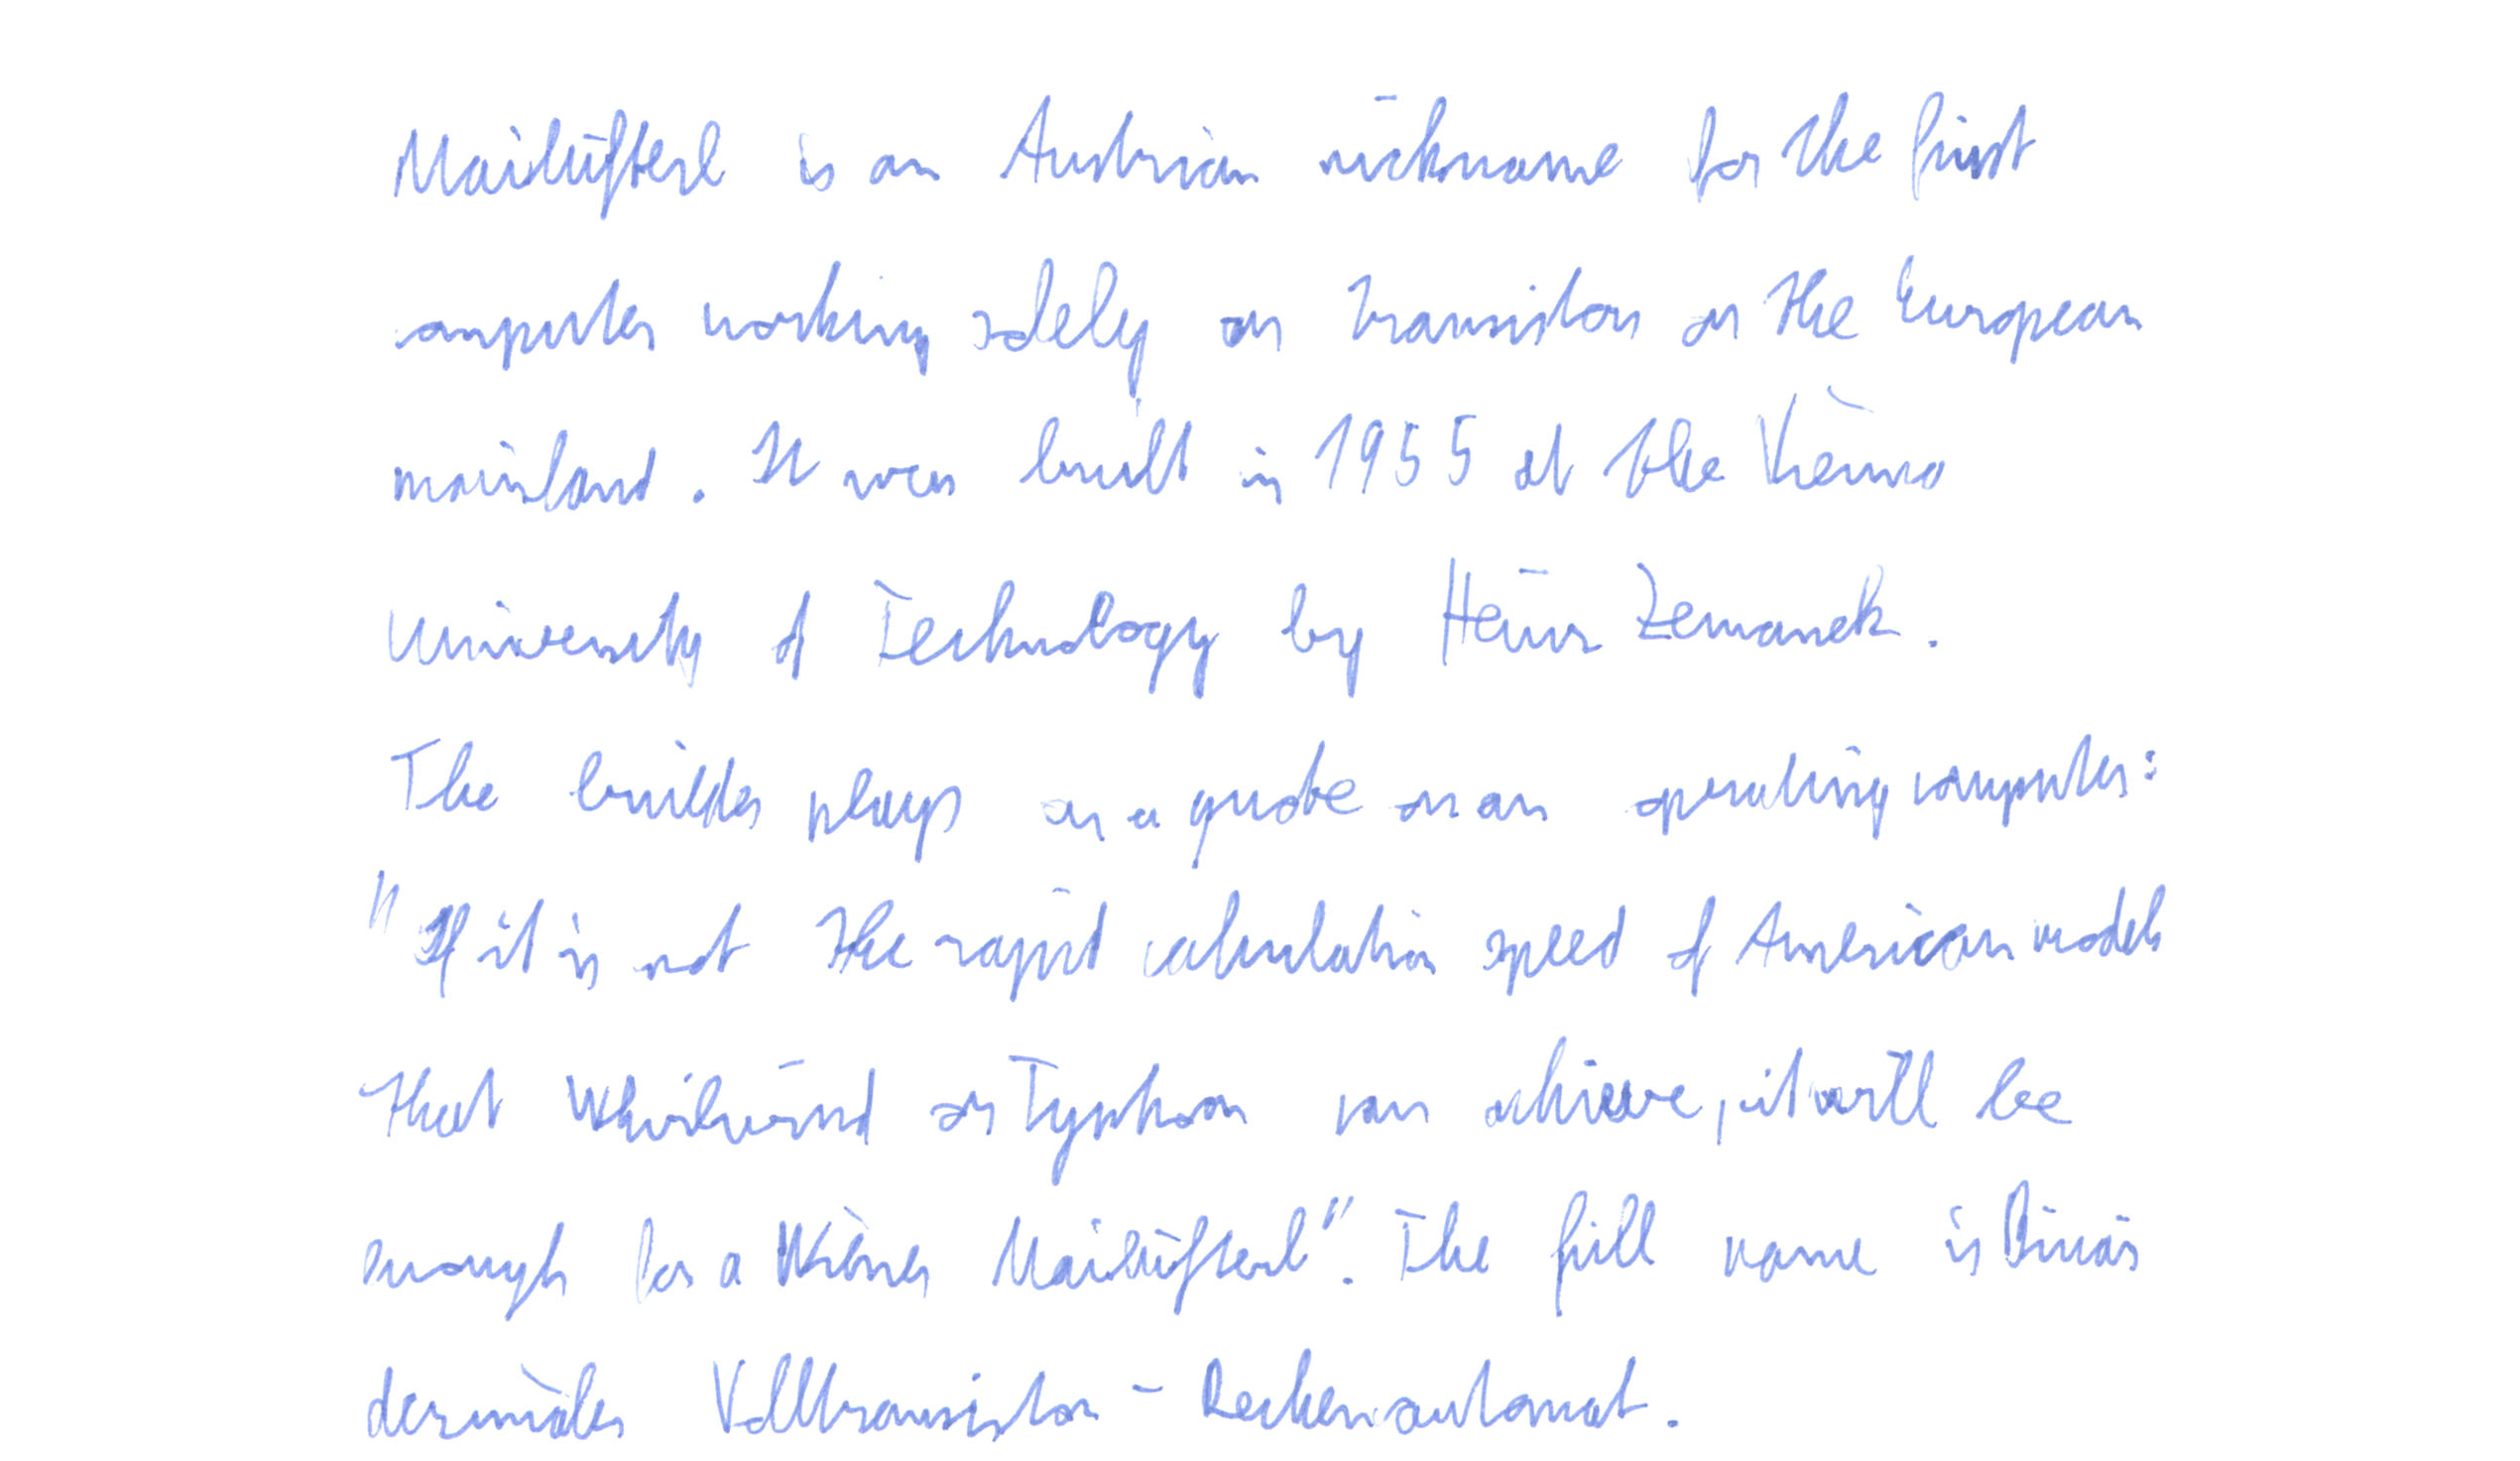 Mailüfterl is an Austrian nickname for the first
computer working solely on transistors on the European
mainland. It was built in 1955 at the Vienna
University of Technology by Heinz Zemanek.
The builder plays on a quote on an operating computer:
"If it is not the rapid calculation speed of American models
that Whirlwind or Typhoon can achieve, it will be
enough for a Wiener Mailüfterl". The full name is Binär
dezimaler Volltransistor-Rechenautomat.